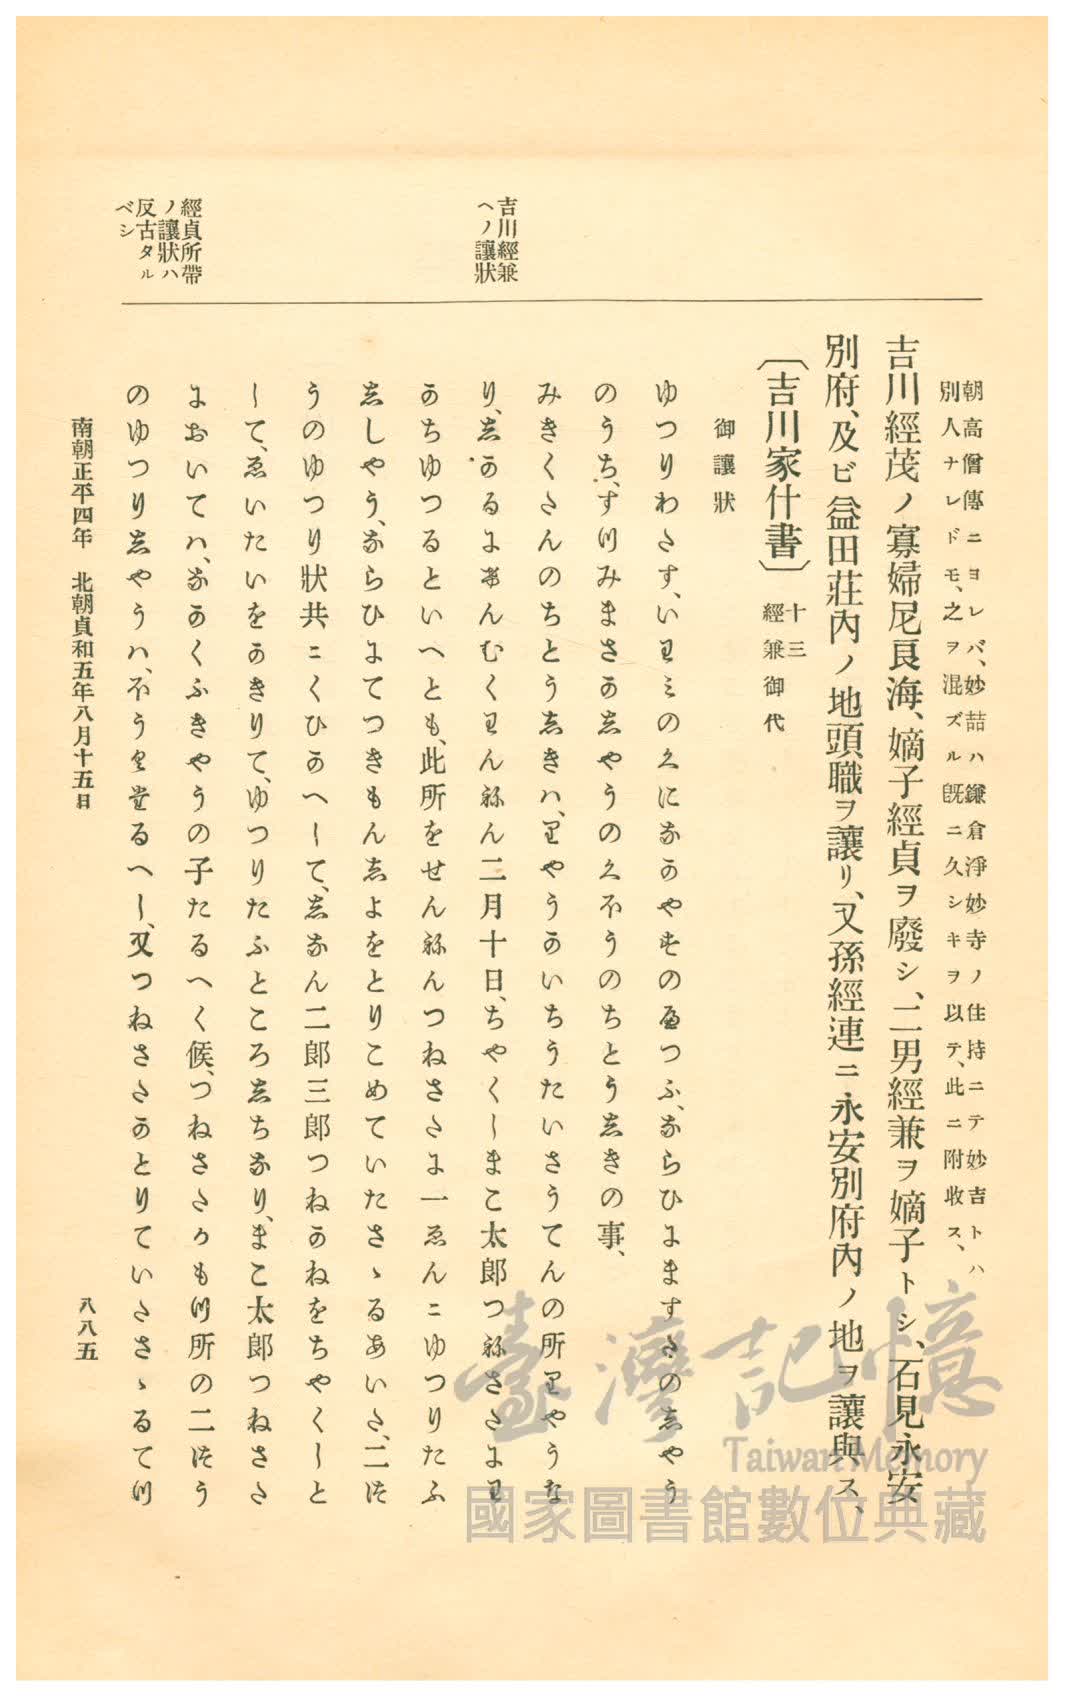 朝高僧傳ニヨレバ、妙喆ハ鎌倉淨妙寺ノ住持ニテ妙吉トハ
別人ナレドモ、之ヲ混ズル旣ニ久シキヲ以テ、此ニ附收ス、
吉川經茂ノ寡婦尼良海、嫡子經貞ヲ廢シ、二男經兼ヲ嫡子トシ、石見永安
別府、及ビ益田莊內ノ地頭職ヲ讓リ、又孫經連ニ永安別府內ノ地ヲ讓與ス、
〔吉川家什書〕
十三
經兼御代
御讓狀
吉川經兼
ヘノ讓狀
ゆつりわたす、いはミのくになかやすのへつふ、ならひにますたのしやう
のうち、すつみまさかしやうのくほうのちとうしきの事、
みきくたんのちとうしきハ、りやうかいちうたいさうてんの所りやうな
り、しかるにけんむくわんねん二月十日、ちやくしまこ太郎つねさたにわ
かちゆつるといへとも、此所をせんねんつねさたに一ゑんニゆつりたふ
ししやう、ならひにてつきもんしよをとりこめていたさゝるあいた、二つ
うのゆつり狀共ニくひかへして、しなん二郎三郎つねかねをちやくしと
して、ゑいたいをかきりて、ゆつりたふところしちなり、まこ太郎つねさた
においてハ、なかくふきやうの子たるへく候、つねさたかも
所の二つう
のゆつりしやうハ、ほうくたるへし、又つねさたかとりていたさゝるてつ
經貞所帶
ノ讓狀ハ
反古タル
ベシ
南朝正平四年　北朝貞和五年八月十五日
八八五
臺灣記憶
Taiwan Memory
國家圖書館數位典藏